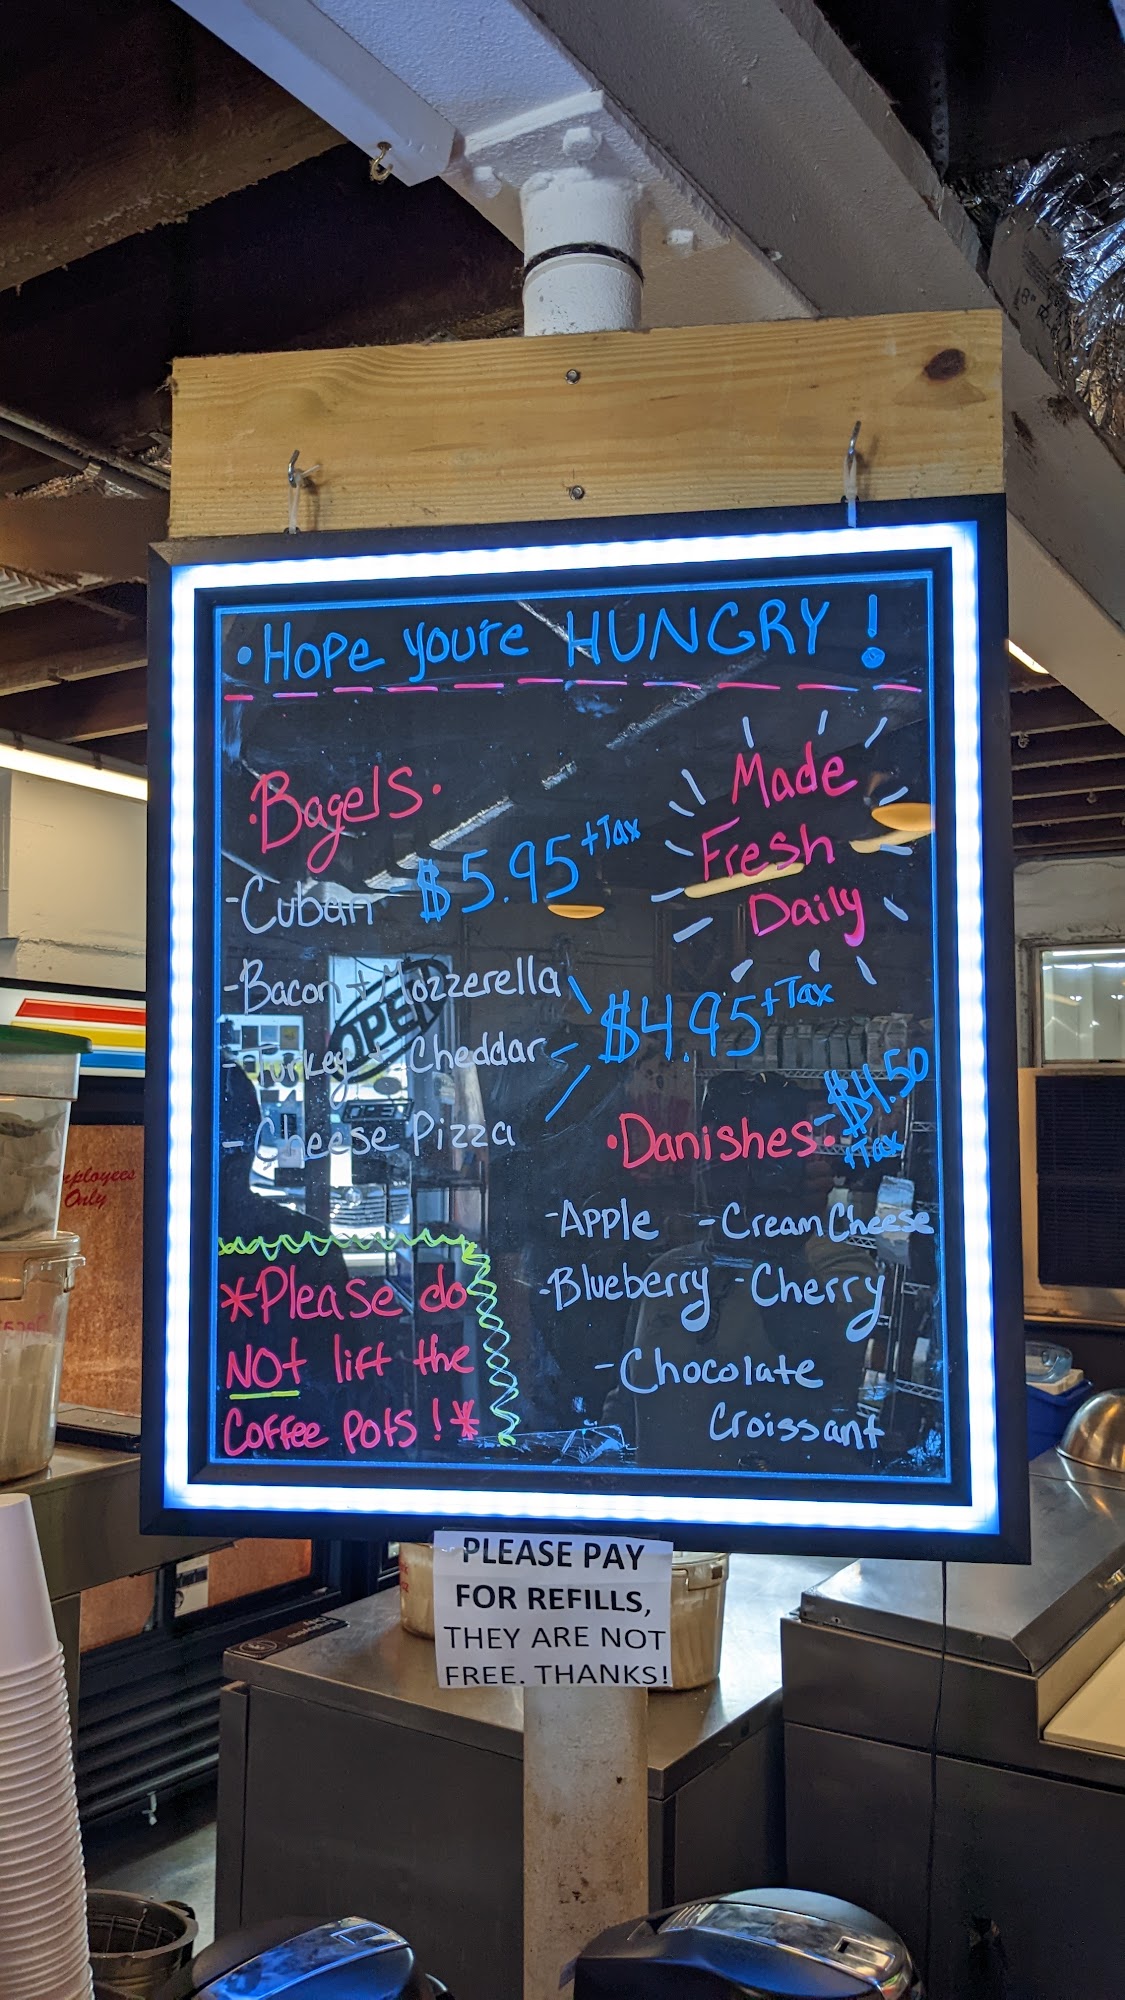 • Hope you're HUNGRY !
• Bagels •
- Cuban $5.95 + Tax
- Bacon + Mozzerella
- Turkey + Cheddar
- Cheese Pizza
$4.95 + Tax
Made
Fresh
Daily
• Danishes • - $4.50
+ Tax
- Apple - Cream Cheese
- Blueberry - Cherry
- Chocolate
Croissant
*Please do
NOt lift the
Coffee pots ! *
PLEASE PAY
FOR REFILLS,
THEY ARE NOT
FREE. THANKS!
OPEN
OPEN
Employees
Only